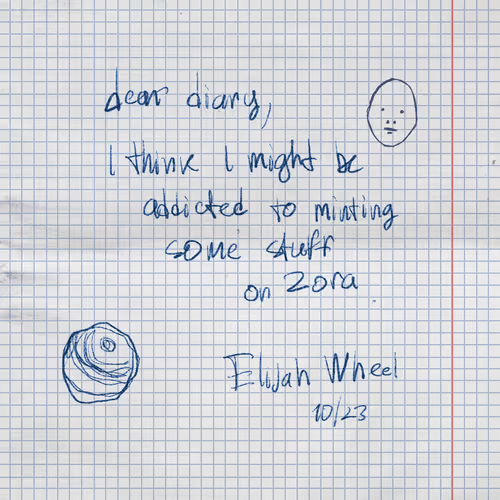 dear diary,
I think I might be
addicted to minting
some stuff
on Zora
Elijah Wheel
10/23